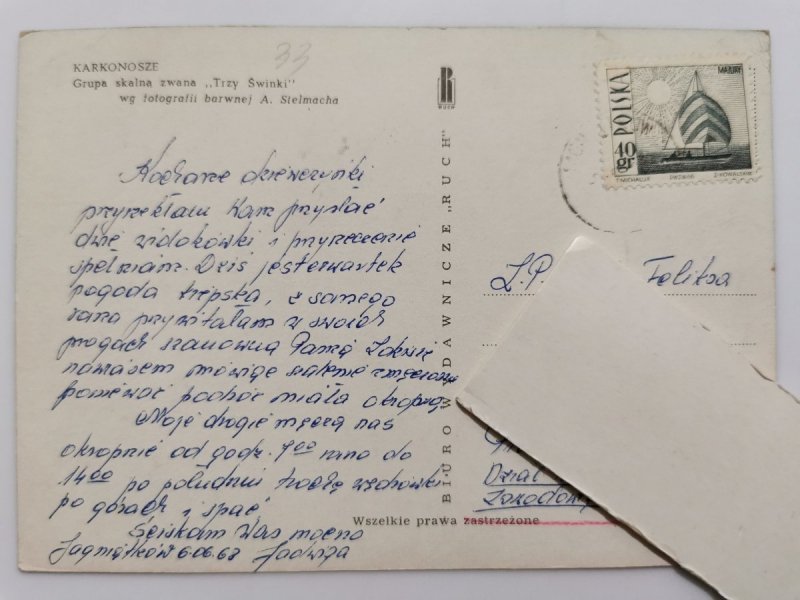 KARKONOSZE
Grupa skalna zwana „Trzy Świnki"
wg fotografii barwnej A. Stelmacha
33
RUCH
BIURO WYDAWNICZE „RUCH"
Wszelkie prawa zastrzeżone
POLSKA
40 gr
MAZURY
Kochane dziewczynki
przyrzekłam Wam przysłać
dwie widokówki i przyrzeczenie
spełniam. Dziś jest czwartek
pogoda kiepska, z samego
rana przywitałam w swoich
progach szanowną Panią
nawiasem mówiąc szalenie zmęczoną
ponieważ podróż miała okropną
Moje drogie męczą nas
okropnie od godz. 7 00 rano do
14 00 po południu trochę wędrówki
po górach i spać
Ściskam Was mocno
Jagniątków 6.06.68 Jadwiga
Z.P.
Feliksa
Dział
Zawodow